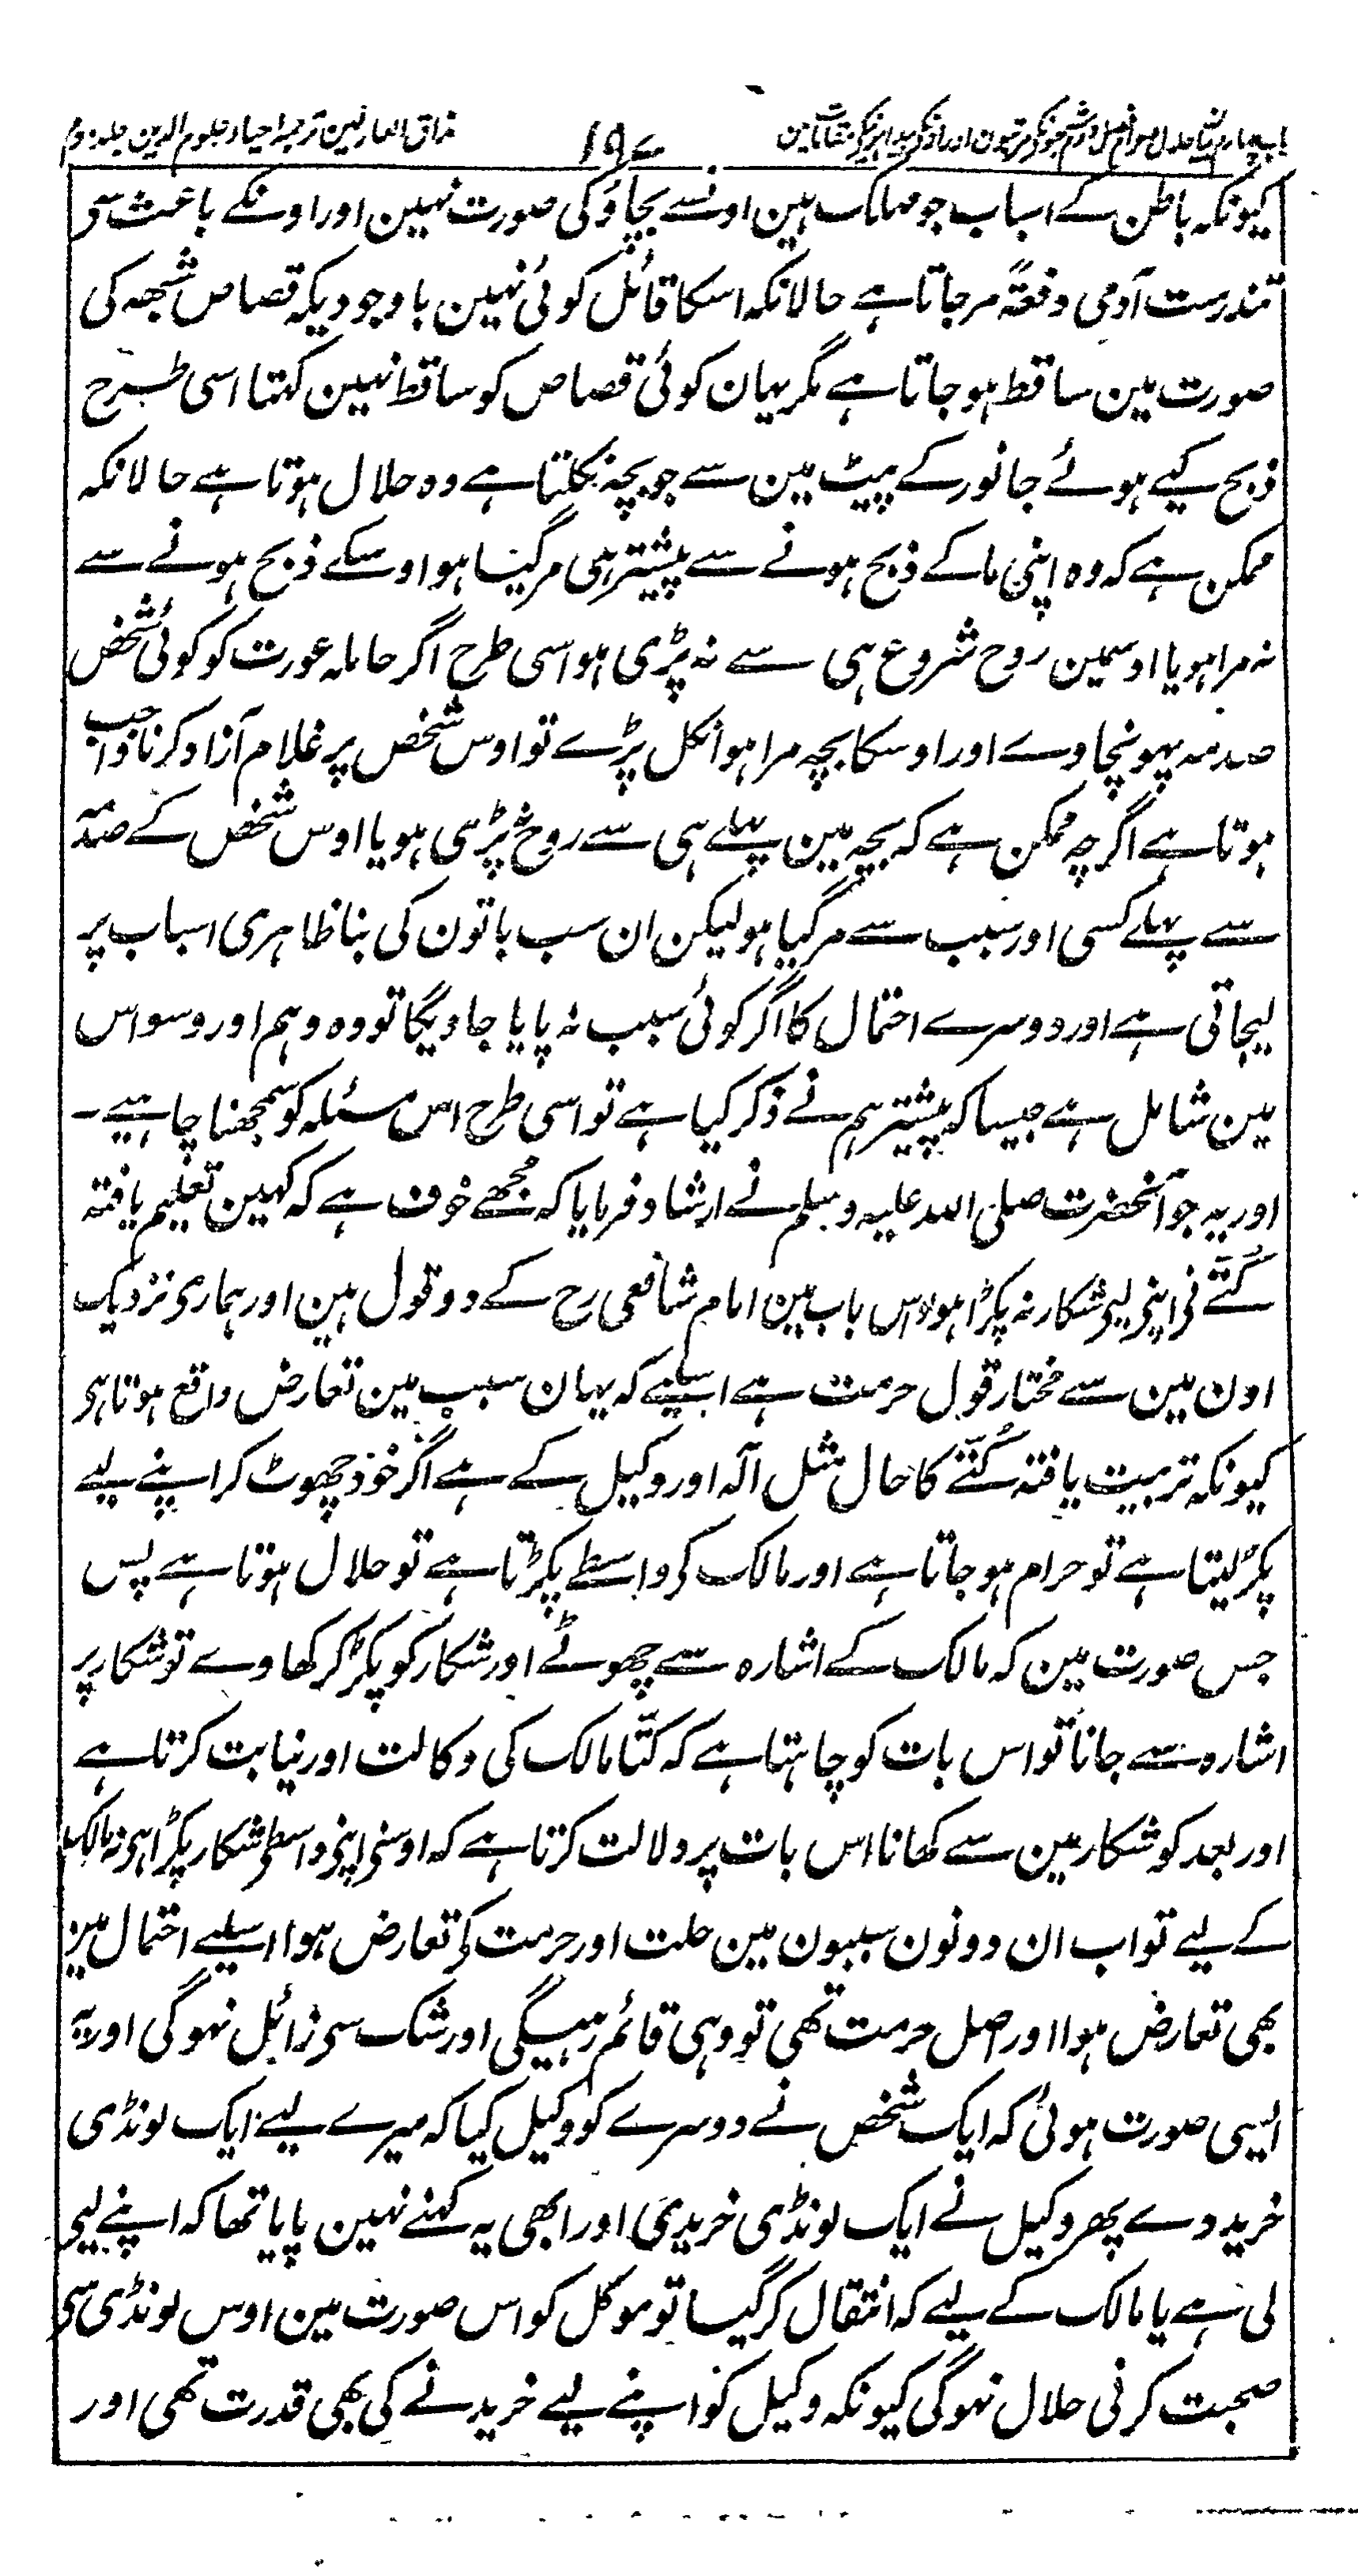 مذاق العارفین ترجمہ احیاء علوم الدین جلد دوم
۱۹۷
کیونکہ باطن کے اسباب جو مہلک ہین اونسے بچاؤ کی صورت نہین اور اونکے باعث سی
تندرست آدمی دفعۃً مر جاتا ہے حالانکہ اسکا قائل کوئی نہین باوجودیکہ قصاص شبھہ کی
صورت مین ساقط ہو جاتا ہے مگر یہان کوئی قصاص کو ساقط نہین کہتا اسی طرح
ذبح کیے ہوئے جانور کے پیٹ مین سے جو بچہ نکلتا ہے وہ حلال ہوتا ہے حالانکہ
ممکن ہے کہ وہ اپنی ما کے ذبح ہونے سے پیشتر ہی مر گیا ہو اوسکے ذبح ہونے سے
نہ مرا ہو یا اوسمین روح شروع ہی سے نہ پڑی ہو اسی طرح اگر حاملہ عورت کو کوئی شخص
صدمہ پہونچاوے اور اوسکا بچہ مرا ہوا نکل پڑے تو اوس شخص پر غلام آزاد کرنا واجب
ہوتا ہے اگرچہ ممکن ہے کہ بچہ مین پہلے ہی سے روح نہ پڑی ہو یا اوس شخص کے صدمہ
سے پہلے کسی اور سبب سے مر گیا ہو لیکن ان سب باتون کی بنا ظاہری اسباب پر
لیجاتی ہے اور دوسرے احتمال کا اگر کوئی سبب نہ پایا جاویگا تو وہ وہم اور وسواس
مین شامل ہے جیسا کہ پیشتر ہم نے ذکر کیا ہے تو اسی طرح اس مسئلہ کو سمجھنا چاہیے ۔
اور یہ جو آنحضرت صلی اللہ علیہ وسلم نے ارشاد فرمایا کہ مجھے خوف ہے کہ کہین تعلیم یافتہ
کُتّے نی اپنی لیے شکار نہ پکڑا ہو اس باب مین امام شافعی رح کے دو قول ہین اور ہماری نزدیک
اون مین سے مختار قول حرمت ہے اسلیے کہ یہان سبب مین تعارض واقع ہوتا ہی
کیونکہ تربیت یافتہ کُتّے کا حال مثل آلہ اور وکیل کے ہے اگر خود چھوٹ کر اپنے لیے
پکڑ لیتا ہے تو حرام ہو جاتا ہے اور مالک کی واسطے پکڑتا ہے تو حلال ہوتا ہے پس
جس صورت مین کہ مالک کے اشارہ سے چھوٹے اور شکار کو پکڑ کر کھاوے تو شکار پر
اشارہ سے جانا تو اس بات کو چاہتا ہے کہ کتّا مالک کی وکالت اور نیابت کرتا ہے
اور بعد کو شکار مین سے کھانا اس بات پر دلالت کرتا ہے کہ اوسنی اپنی واسطی شکار پکڑا ہی نہ مالک
کے لیے تو اب ان دونون سببون مین حلت اور حرمت کی تعارض ہوا اسلیے احتمال مین
بھی تعارض ہوا اور اصل حرمت تھی تو وہی قائم رہیگی اور شک سی زائل نہوگی اور یہ
ایسی صورت ہوئی کہ ایک شخص نے دوسرے کو وکیل کیا کہ میرے لیے ایک لونڈی
خریدوے پھر وکیل نے ایک لونڈی خریدی اور ابھی یہ کہنے نہین پایا تھا کہ اپنے لیے
لی ہے یا مالک کے لیے کہ انتقال کر گیا تو موکل کو اس صورت مین اوس لونڈی سی
صحبت کرنی حلال نہوگی کیونکہ وکیل کو اپنے لیے خریدنے کی بھی قدرت تھی اور